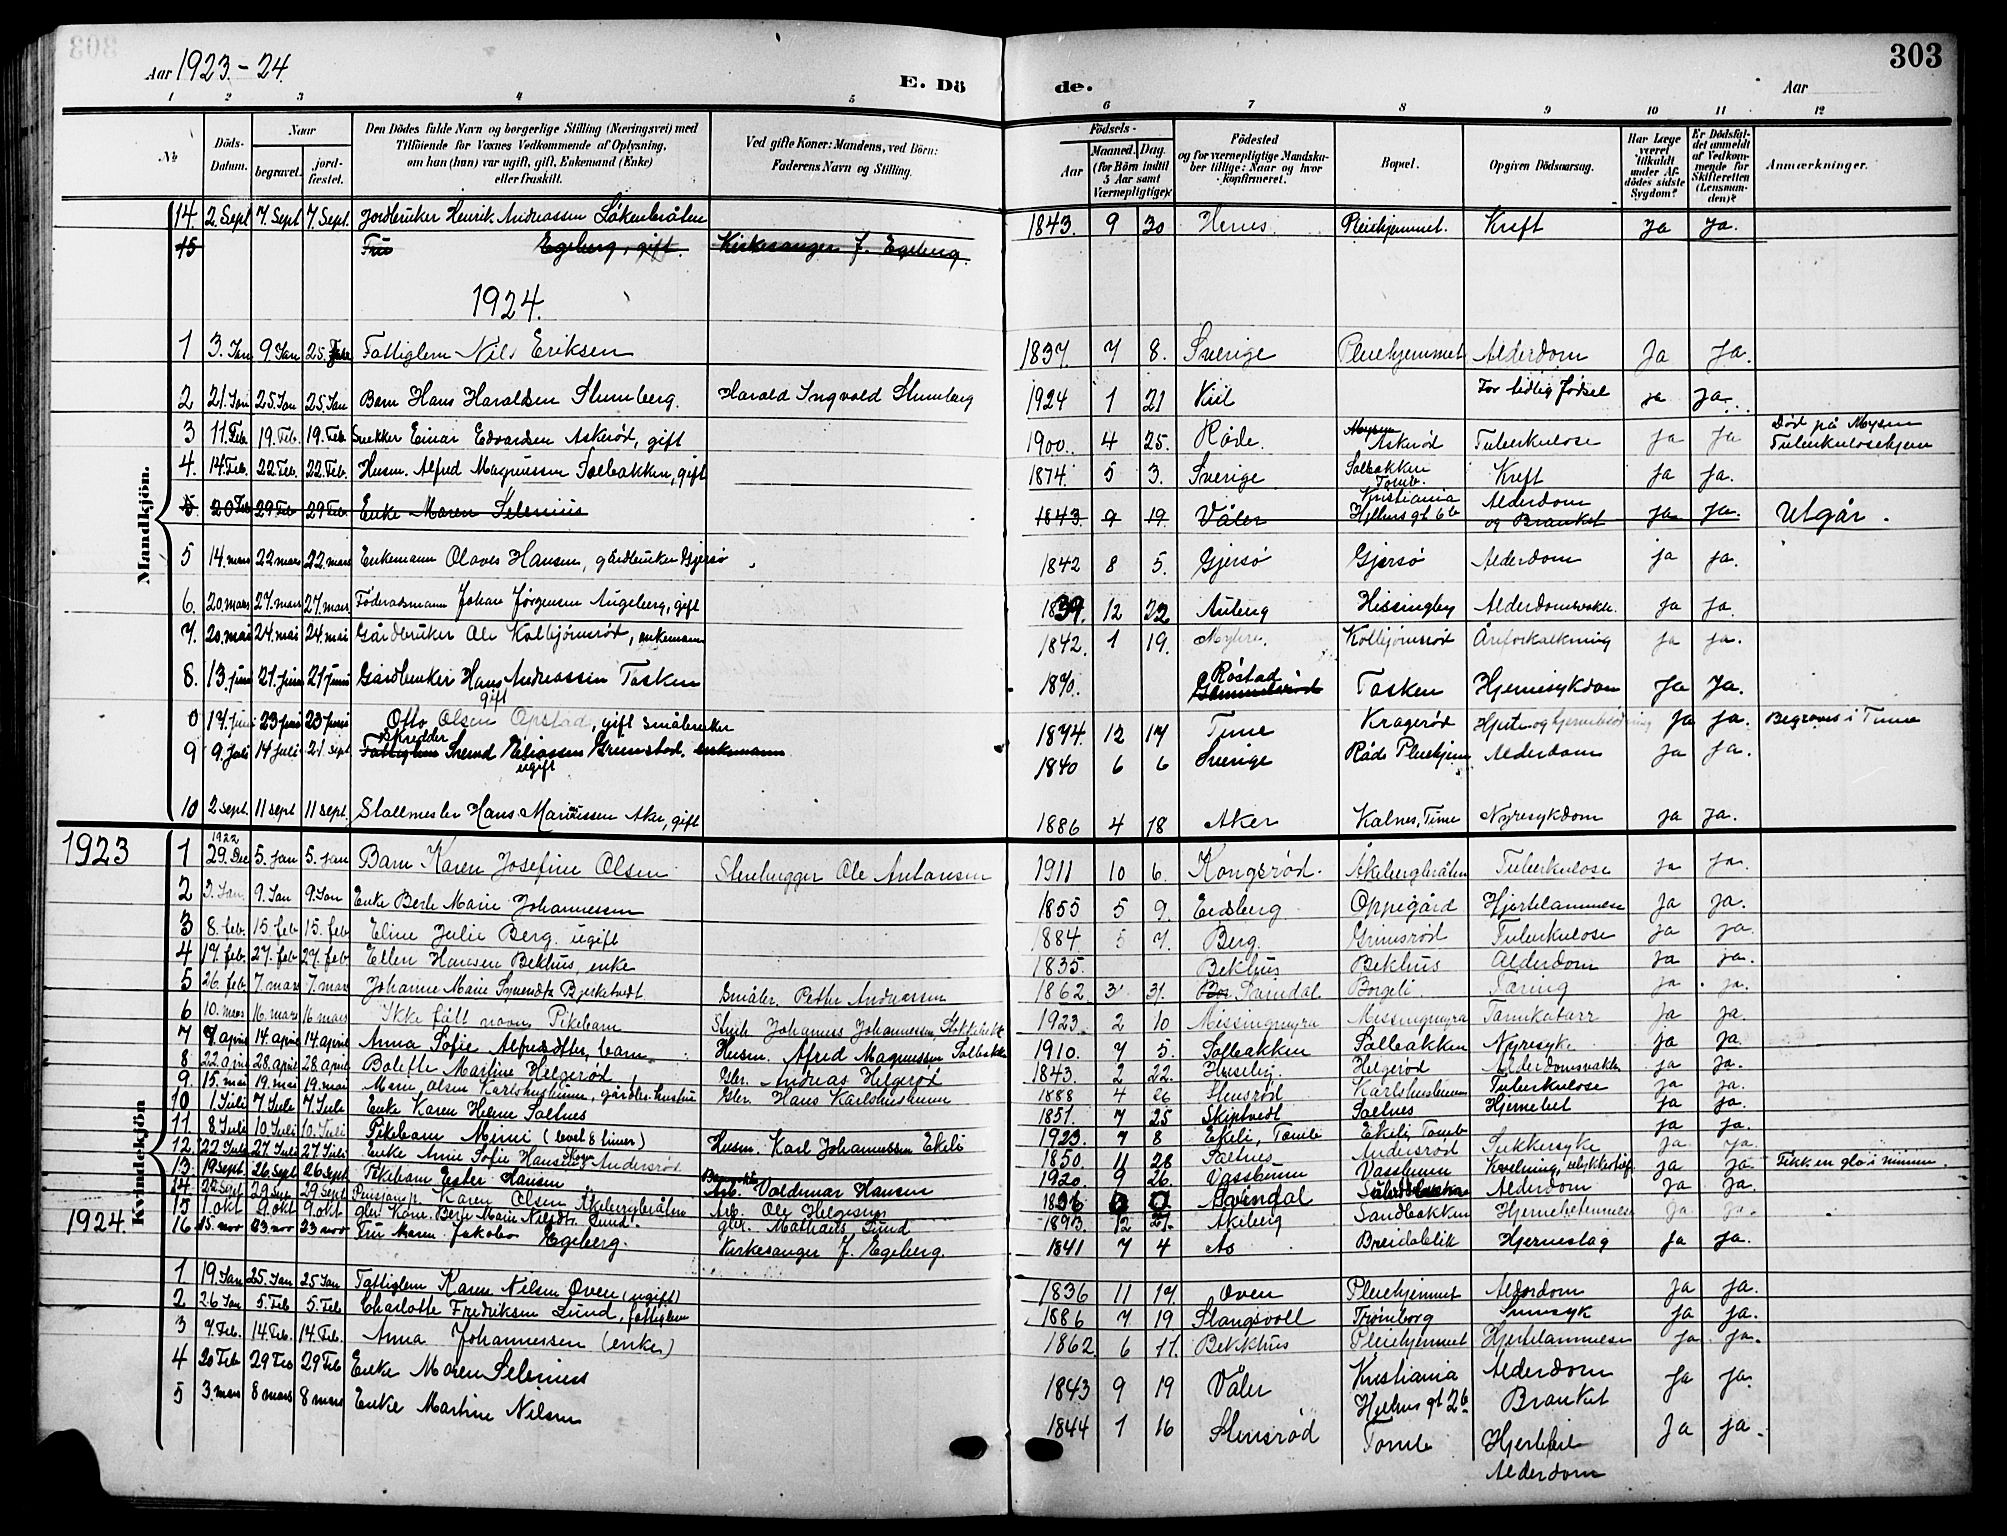 303
Aar 1923-24. E. Dö de. Aar
1 2 3 4 5 6 7 8 9 10 11 12
№ Döds-Datum. Naar begravet. jord-fæstet. Den Dödes fulde Navn og borgerlige Stilling (Næringsvei) med Tilföiende for Voxnes Vedkommende af Oplysning, om han (hun) var ugift, gift, Enkemand (Enke) eller fraskilt. Ved gifte Koner: Mandens, ved Börn: Faderens Navn og Stilling. Födsels- Aar Maaned. Dag. (for Börn indtil 5 Aar samt Værnepligtige). Födested og for værnepligtige Mandskaber tillige: Naar og hvor konfirmeret. Bopæl. Opgiven Dödsaarsag. Har Læge været tilkaldt under Afdödes sidste Sygdom? Er Dödsfaldet anmeldt af Vedkommende for Skifteretten (Lensmanden)? Anmærkninger.
Mandkjön.
14. 2. Sept 7 Sept 7 Sept. Jordbruker Henrik Andreassen 1843. 9 30 Pleiehjemmet. Kreft Ja Ja.
15 Fru Egeberg, gift. Kirkesanger J. Egeberg.
1924.
1 3. Jan 9. Jan 25. Fattiglem Nils Eriksen 1837. 7 8. Sverige Pleiehjemmet Alderdom Ja Ja.
2 21. Jan 25. Jan 25. Jan Barn Hans Haraldsen Stumberg. Harald Ingvold Stumberg 1924 1 21 Kiil For tidlig födsel ja ja.
3 11. Feb. 19. Feb. 19. Feb. Snekker Einar Edvardsen Askerød, gift 1900. 4 25. Råde. Mysen Askerød Tuberkulose ja ja Död på Mysen Tuberkulosehjem
4. 14. Feb. 22 Feb. 22 Feb. Husm. Alfred Magnussen Solbakken, gift 1874. 5 3. Sverige Solbakken Tomb. Kreft ja ja.
5. 20 Feb 29 Feb 29 Feb. Enke Maren Selenius 1843. 9 19. Våler Kristiania Hjelms gt 6b Alderdom og Bronket ja ja. Utgår.
5 14. mars 22 mars 22. mars Enkemann Olaves Hansen, gårdbruker Gjersø 1842 8 5. Gjersø Gjersø Alderdom ja ja.
6. 20. mars 27. mars 27. mars Föderaadsmann Johan Jörgensen Augeberg, gift 1839. 12 22 Auberg Missingby Alderdomssvakh. ja ja.
7. 20. mai 24. mai 24. mai Gårdbruker Ole Kolbjörnsrød, enkemann 1842. 1 19. Kolbjörnsrød Åreforkalkning ja ja.
8. 13. juni 21. juni 21 juni Gårdbruker Hans Andreassen Tasken gift 1870. Röstad Gammelsrød Tasken Hjernesykdom Ja Ja.
0 17. juni 23 juni 23 juni Otto Olsen Opstad, gift småbruker 1874. 12 17 Tune Kragerød Ja ja. Begraves i Tune
9 9. Juli 14 juli 21 sept Skredder Fattiglem Svend Eliassen Grimstad. enkemann ugift 1840 6 6 Sverige Råde Pleiehjem Alderdom Ja ja.
10 2 sept. 11 sept 11 sept. Stallmester Hans Mariussen Aker, gift 1886 4 18 Aker Kalnes, Tune Nyresykdom ja ja.
1923
Kvindekjön
1 1922 29. Des 5. Jan 5. Jan Barn Karen Josefine Olsen Stenhugger Ole Antonsen 1911 10 6. Kongsrød. Åkebergbråten Tuberkulose ja ja.
2 3. Jan. 9. Jan 9. Jan Enke Berte Marie Johannessen 1855 5 9. Eidsberg Oppegård Hjertelammelse ja ja.
3 8. feb. 15. feb 15. feb Eline Julie Berg. ugift 1884. 5 7. Berg. Grimsrød Tuberkulose ja ja.
4 17. feb. 27. feb 27. feb Ellen Hansen Bekhus, enke 1835. Bekhus Bekhus Alderdom ja ja.
5 26. feb 7 mars 7. mars Johanne Marie Syvertsdtr Bjerketvedt. Småbr. Petter Andreassen 1862. 3 31. Svindal. Borgeli. Tæring ja ja.
6 10. mars 16. mars 16 mars Ikke fått navn Pikebarn Johannes Johannessen, 1923. 2 10 Missingmyra Missingmyra Tarmkatarr Ja ja
7 9. april 14. april 14. april Anna Sofie Alfredsdtter, barn. Husm. Alfred Magnussen Solbakk. 1910. 7 5. Solbakken Solbakken Nyresyke ja ja.
8 22. april 28. april 28. april Bolette Martine Helgerød Gbr. Andreas Helgerød 1843. 2 22. Huseby. Helgerød Alderdomssvakh. ja ja.
9. 15. mai 19. mai 19. mai Marie Olsen Karlshushaugen, gårdbr. hustru Gbr. Hans Karlshushaugen 1888 4 26 Stensrød Tuberkulose ja ja.
10 1 Juli 7 Jule 7 Jule Enke Karen Helene Saltnes 1851. 7 25 Skiptvedt Saltnes Hjerneblt ja ja.
11. 8. Juli 10. Juli 10. Juli Pikebarn Mimi (levet 8 timer) Husm. Karl Johannessen Ekeli 1923. 7 8 Ekeli, Tomb Ekeli, Tomb ja ja.
12. 22 Juli 27 Juli 27 Juli Enke Anne Sofie Hansen Andersrød 1850 11 28 Saltnes Andersrød Sukkersyke ja ja.
13. 19 Sept. 26 Sept 26 Sept Pikebarn Ester Hansen Arb. Valdemar Hansen 1920. 9 26. Vassbunn Vassbunn Kvelning, ulykkestilf. ja ja. Fikk en glo i munnen.
14 22 Sept 29 Sep 29 Sept Karen Olsen Åkebergbråten Arb. Ole Helgesen Svindal Alderdom ja ja.
15 1. okt 9. okt 9. okt gbr. kone. Berte Marie Nilsdtr Lund gbr. Mathias Lund 1893 12 21. Åkeberg Sandbakken Hjernebetennelse ja ja.
16 15. nov 23. nov 23 nov Fru Maren Jakoba Egeberg. Kirkesanger J. Egeberg. 1841 7 4 Ås Breidablik Hjerneslag ja ja.
1924.
1 19. Jan 25. Jan 25 Jan Fattiglem Karen Nilsen Oven (ugift) 1836 11 17. Oven Pleiehjemmet Alderdom Ja ja.
2 26 Jan 5. Feb 5. Feb Charlotte Fredriksen Lund, fattiglem 1886 7 19 Slangsvoll Trømborg Sinnsyk Ja ja.
3 7. Feb. 14 Feb. 14. Feb. Anna Johannessen (enke) 1862. 6 11. Bekkhus Pleiehjemmet Hjertelammelse Ja ja.
4 20 Feb 29 Feb 29 Feb Enke Maren Selenius 1843 9 19 Våler Kristiania Hjelms gt 26 Alderdom Bronket Ja ja.
5 3. mars 8 mars 8 mars Enke Martine Nilsen 1844 1 16 Stensrød Tomb Hjertefeil Alderdom Ja ja.